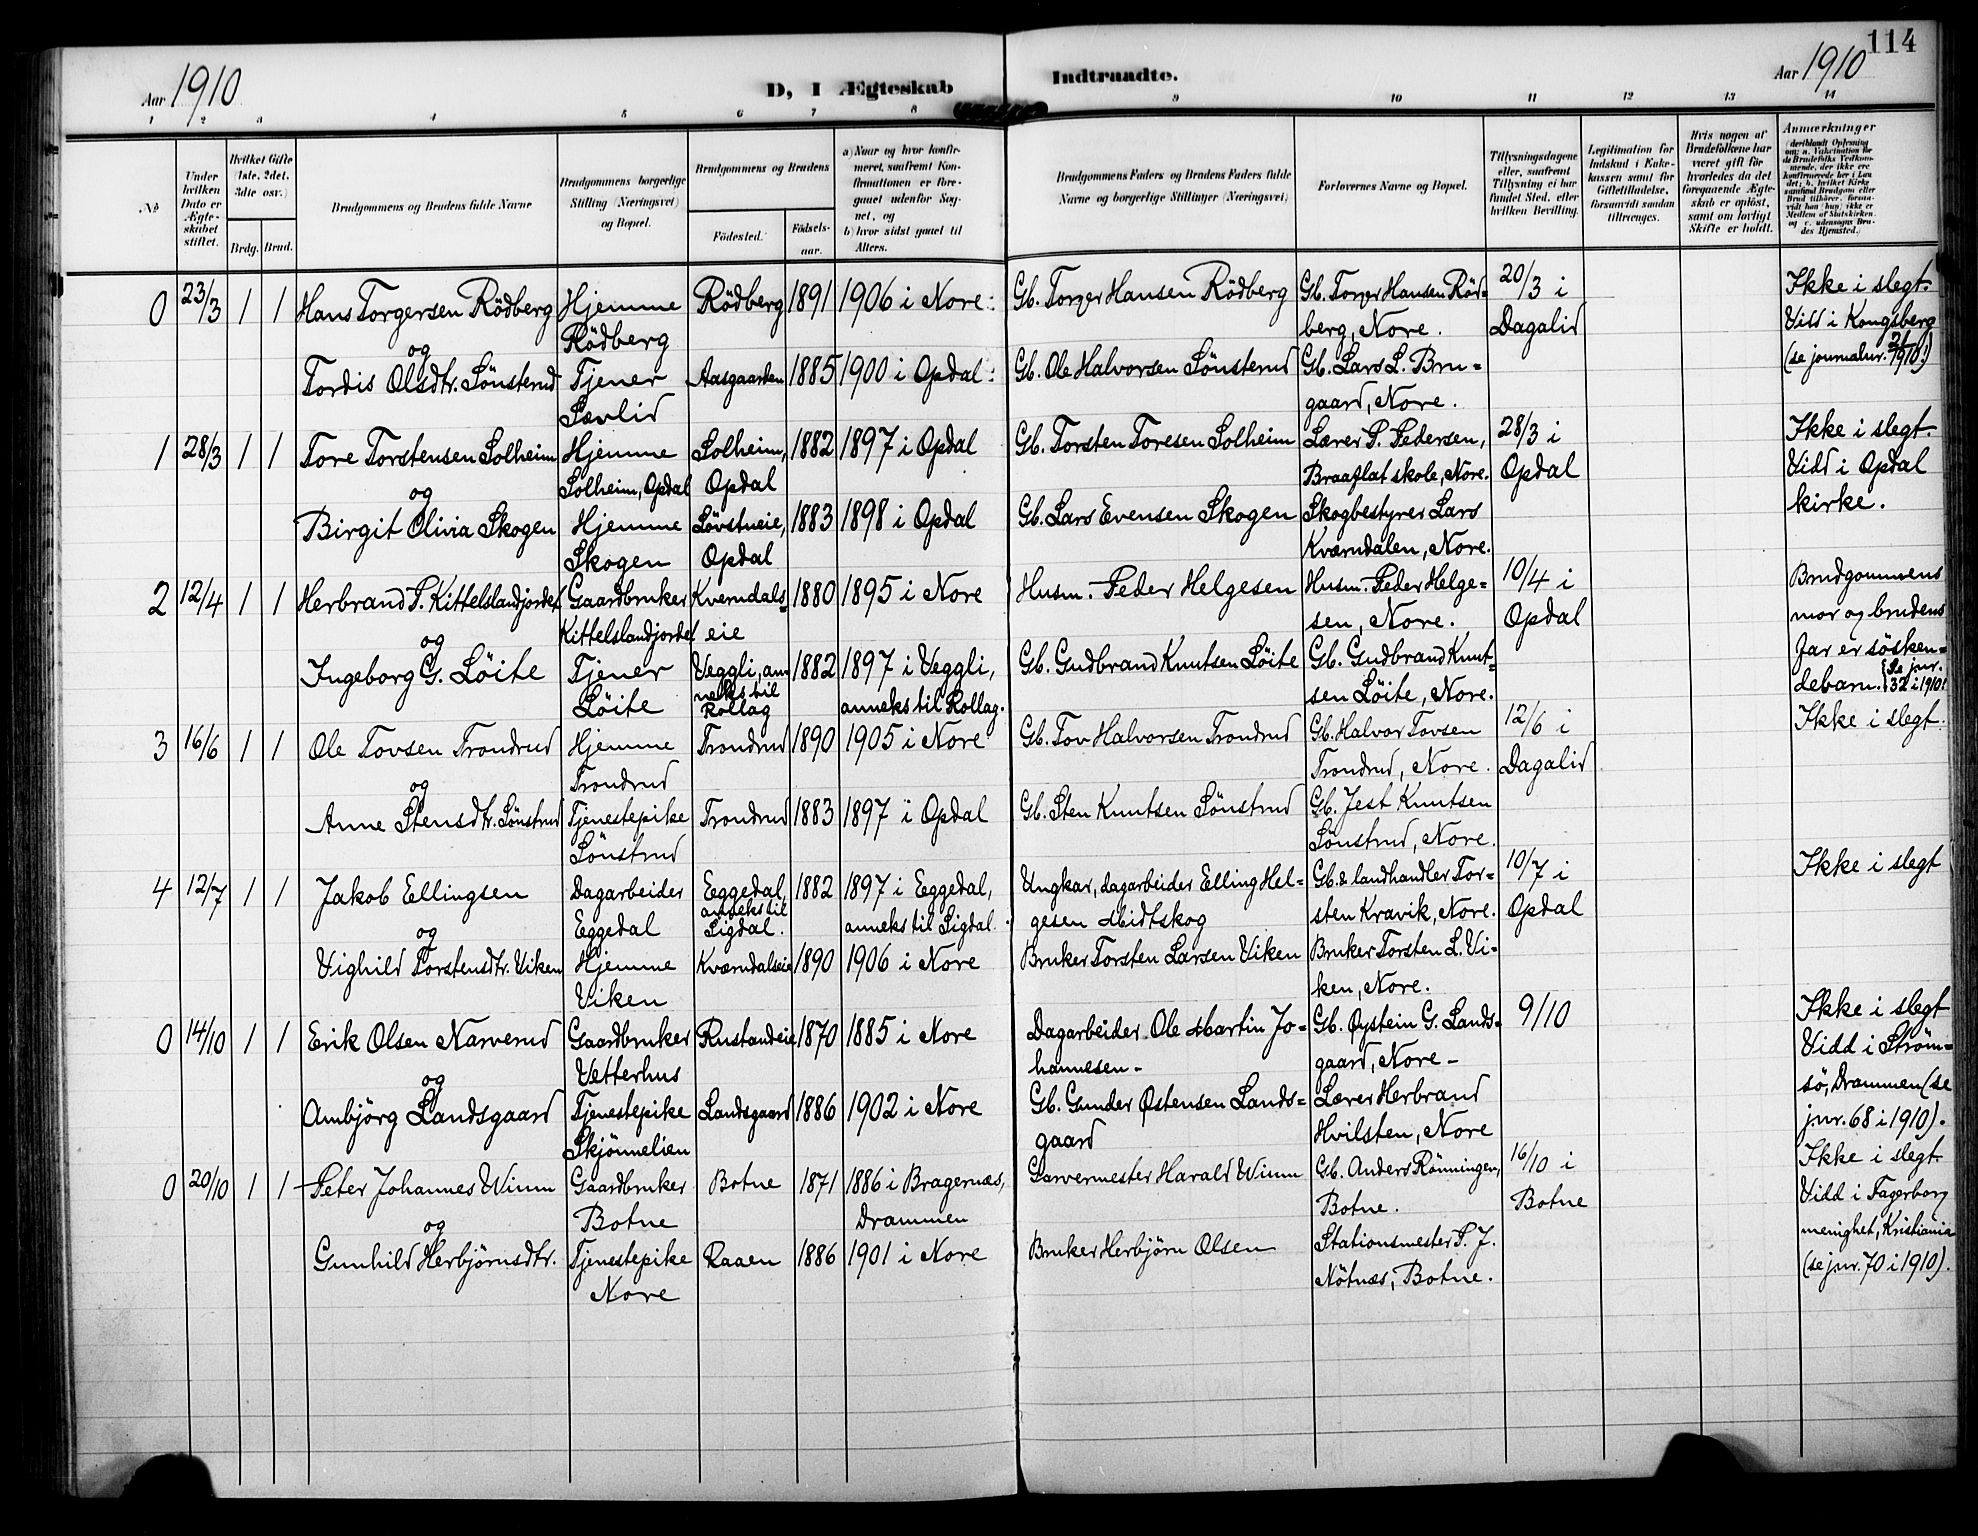 114
Aar 1910
D, I Ægteskab Indtraadte.
Aar 1910
1 2 3 4 5 6 7 8 9 10 11 12 13 14
No
Under hvilken Dato er Ægteskabet stiftet.
Hvilket Gifte (1ste, 2det, 3die osv.)
Brdg. Brud.
Brudgommens og Brudens fulde Navne
Brudgommens borgerlige Stilling (Næringsvei) og Bopæl.
Brudgommens og Brudens
Födested. Födsels-aar.
a) Naar og hvor konfirmeret, saafremt Konfirmationen er foregaaet udenfor Sognet, og
b) hvor sidst gaaet til Alters.
Brudgommens Faders og Brudens Faders fulde Navne og borgerlige Stillinger (Næringsvei)
Forlovernes Navne og Bopæl.
Tillysningsdagene eller, saafremt Tillysning ei har fundet Sted, efter hvilken Bevilling.
Legitimation for Indskud i Enkekassen samt for Giftetilladelse, forsaavidt saadan tiltrænges.
Hvis nogen af Brudefolkene har været gift før hvorledes da det foregaaende Ægteskab er oplöst, samt om lovligt Skifte er holdt.
Anmærkninger
0 23/3 1 1 Hans Torgersen Rödberg Hjemme Rödberg 1891 1906 i Nore. Gb. Torger Hansen Rödberg Gb. Torger Hansen Röd- 20/3 i Ikke i slegt.
Rödberg berg, Nore. Dagalid Vidd i Kongsberg
og
Tordis Olsdtr. Sönsterud Tjener Aasgaarden 1885 1900 i Opdal. Gb. Ole Halvorsen Sönsterud Gb. Lars L. Bru= (se journalnr. 1910.)
Sævlid gaard, Nore.
1 28/3 1 1 Tore Torstensen Solheim Hjemme Solheim, 1882 1897 i Opdal Gb. Torsten Toresen Solheim Lærer P. Pedersen, 28/3 i Ikke i slegt.
Solheim, Opdal Opdal Braaflat skole, Nore. Opdal Vidd i Opdal
og
Birgit Olivia Skogen Hjemme Lövstueie, 1883 1898 i Opdal Gb. Lars Evensen Skogen Skogbestyrer Lars kirke.
Skogen Opdal Kværndalen, Nore.
2 12/4 1 1 Herbrand P. Kittelslandjordet Gaardbruker Kverndals= 1880 1895 i Nore Husm. Peder Helgesen Husm. Peder Helge= 10/4 i Brudgommens
Kittelslandjordet eie sen, Nore. Opdal mor og brudens
og
Ingeborg G. Löite Tjener Veggli, an- 1882 1897 i Veggli, Gb. Gudbrand Knutsen Löite Gb. Gudbrand Knut= far er sösken=
Löite neks til Rollag anneks til Rollag. sen Löite, Nore. debarn. {Se jnr. 32 i 1910!
3 16/6 1 1 Ole Tovsen Trondrud Hjemme Trondrud 1890 1905 i Nore Gb. Tov Halvorsen Trondrud Gb. Halvor Tovsen 12/6 i Ikke i slegt.
Trondrud Trondrud, Nore. Dagalid
og
Anne Stensdtr. Sönstrud Tjenestepike Trondrud 1883 1897 i Opdal Gb. Sten Knutsen Sönstrud Gb. Jest Knutsen
Sönstrud Sönstrud, Nore.
4 12/7 1 1 Jakob Ellingsen Dagarbeider Eggedal, 1882 1897 i Eggedal, Ungkar, dagarbeider Elling Hel= Gb. & landhandler Tor= 10/7 i Ikke i slegt
Eggedal anneks til Sigdal. anneks til Sigdal. gesen Midtskog sten Kravik, Nore. Opdal
og
Vighild Torstensdtr. Viken Hjemme Kværndalseie 1890 1906 i Nore Bruker Torsten Larsen Viken Bruker Torsten L. Vi=
Viken ken, Nore.
0 14/10 1 1 Erik Olsen Narverud Gaardbruker Rustandeie 1870 1885 i Nore Dagarbeider Ole Martin Jo= Gb. Øystein G. Lands= 9/10 Ikke i slegt
Vetterhus hannesen. gaard, Nore. Vidd i Ström=
og
Ambjörg Landsgaard Tjenestepike Landsgaard 1886 1902 i Nore Gb. Gunder Østensen Lands= Lærer Herbrand sö, Drammen (se
Skjönnelien gaard Hvilsten, Nore jnr. 68 i 1910).
0 20/10 1 1 Peter Johannes Winn Gaardbruker Botne 1871 1886 i Bragernæs, Garvermester Harald Winn Gb. Anders Rönningen, 16/10 i Ikke i slegt.
Botne Drammen Botne. Botne Vidd i Fagerborg
og
Gunhild Herbjörnsdtr. Tjenestepike Raaen 1886 1901 i Nore Bruker Herbjörn Olsen Stationsmester P. J. menighet, Kristiania
Nore Nötnæs, Botne. (se jnr. 70 i 1910).